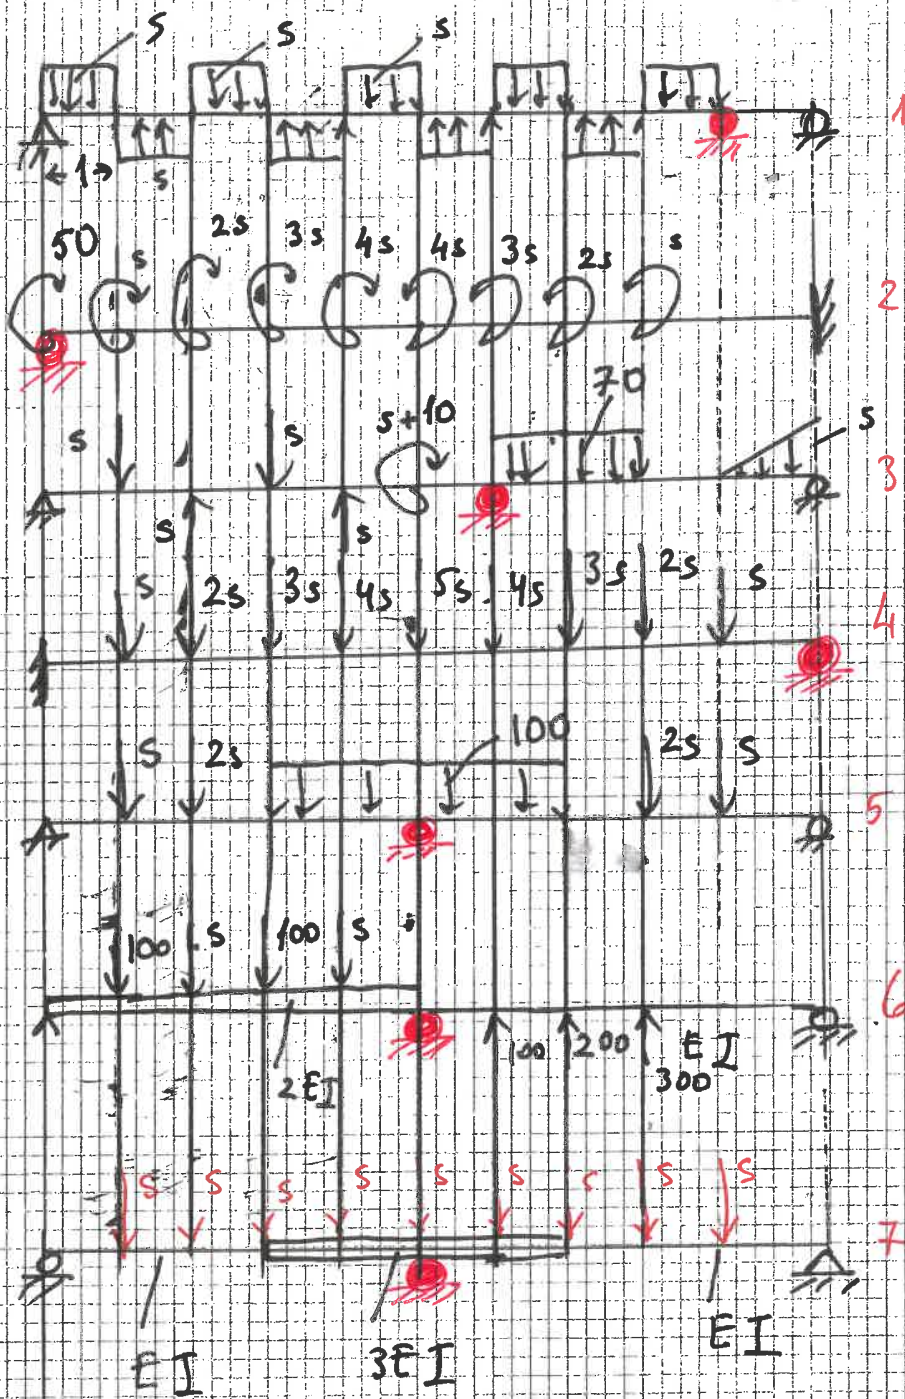 s s s
1
1 s
50 s 2s 3s 4s 4s 3s 2s s
2
70
s s s+10 s
3
s s
s 2s 3s 4s 5s 4s 3s 2s s
4
100
s 2s 2s s
5
100 s 100 s
6
100 200 EI
300
2EI
s s s s s s s s s
7
EI 3EI EI